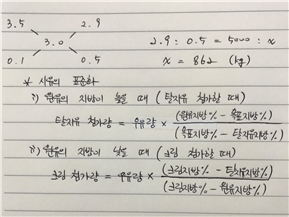 3.5 2.9
3.0 2.9 : 0.5 = 5000 : x
0.1 0.5 x = 862 (kg)
* 시유의 표준화
i) 원유의 지방이 높을 때 (탈지유 첨가할 때)
탈지유 첨가량 = 우유량 × (원유지방% - 목표지방%) / (목표지방% - 탈지유지방%)
ii) 원유의 지방이 낮을 때 (크림 첨가할 때)
크림 첨가량 = 우유량 × (크림지방% - 탈지유지방%) / (크림지방% - 원유지방%)